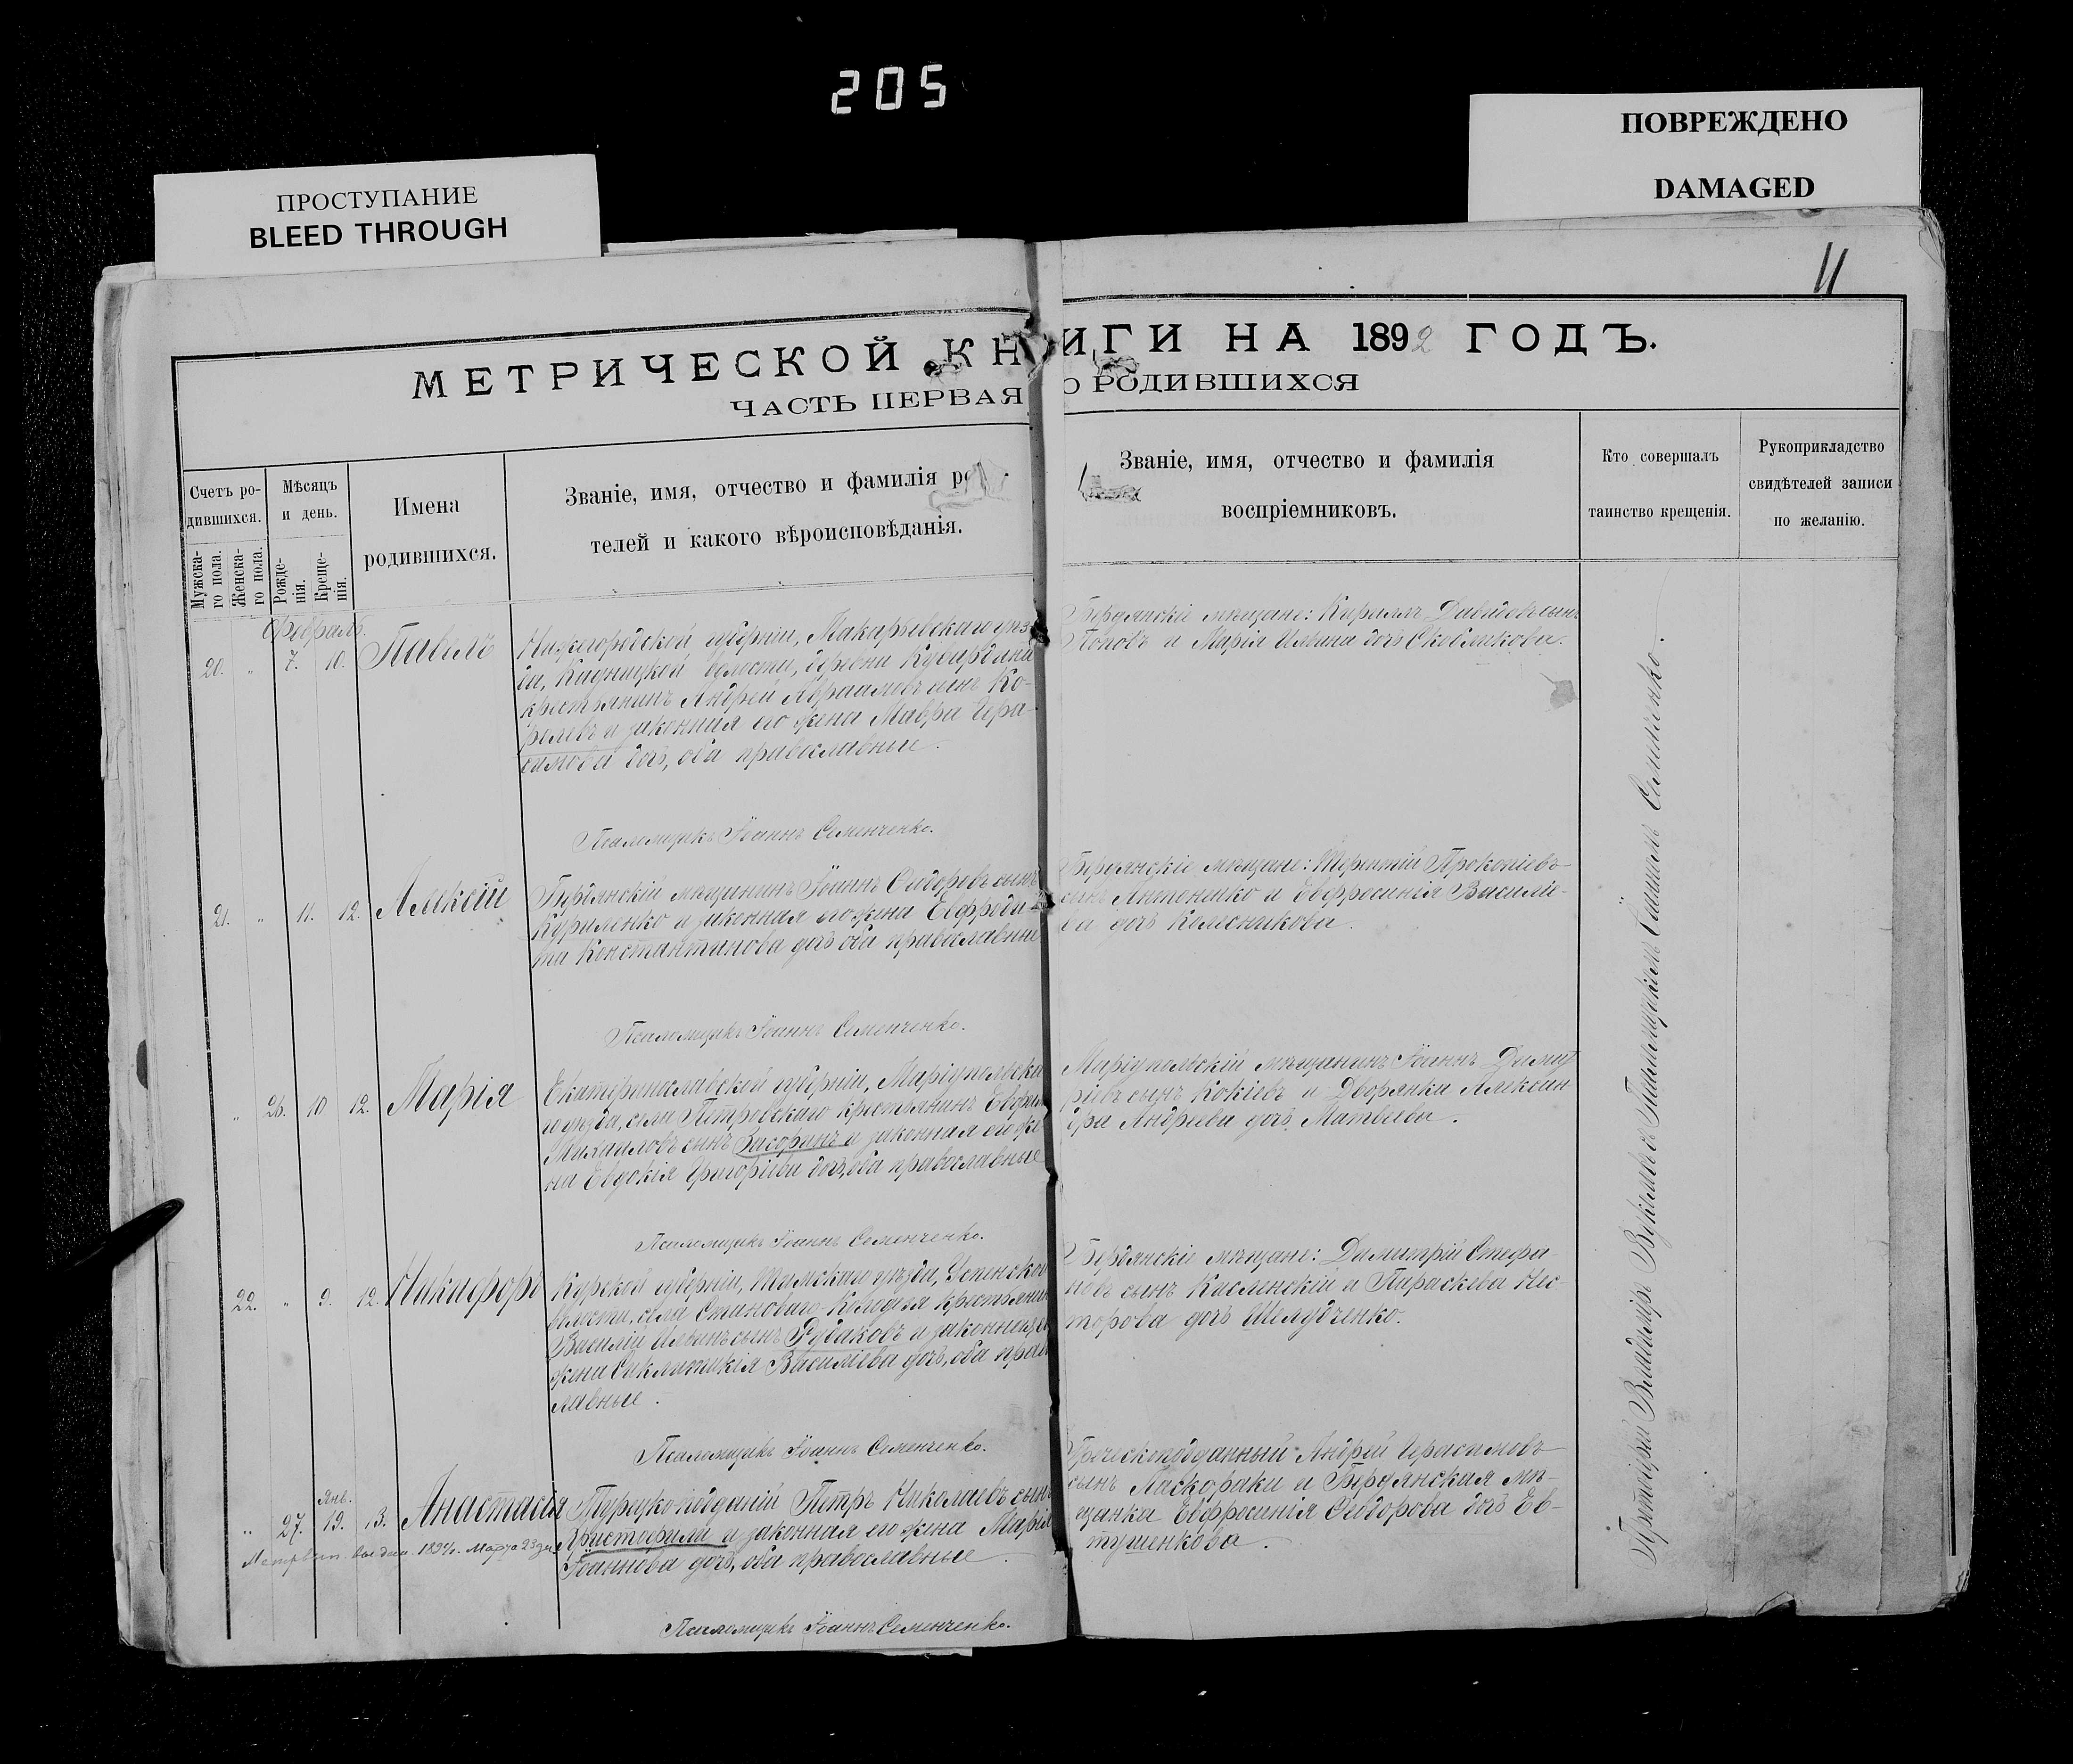 205
ПРОСТУПАНИЕ
BLEED THROUGH
ПОВРЕЖДЕНО
DAMAGED
11
МЕТРИЧЕСКОЙ КНИГИ НА 1892 ГОДЪ.
ЧАСТЬ ПЕРВАЯ О РОДИВШИХСЯ
Счетъ ро-
дившихся.
Мужска-
го пола.
Женска-
го пола.
Мѣсяцъ
и день.
Рожде-
нія.
Креще-
нія.
Имена
родившихся.
Званіе, имя, отчество и фамилія ро
телей и какого вѣроисповѣданія.
Званіе, имя, отчество и фамилія
воспріемниковъ.
Кто совершалъ
таинство крещенія.
Рукоприкладство
свидѣтелей записи
по желанію.
Февраль.
20. " 7. 10. Павелъ
Нижегородской губерніи, Макарьевскаго уѣз-
да, волости, деревни
крестьянинъ Андрей сынъ Ко-
ролевъ и законная его жена Мавра Гера-
симова дочь, оба православные.
Псаломщикъ Іоаннъ Семенченко.
Бердянскіе мѣщане: Кириллъ Давидовъ сынъ
Поповъ и Марія Ильина дочь
21. " 11. 12. Алексій
Бердянскій мѣщанинъ Іоаннъ Сидоровъ сынъ
Куриленко и законная его жена Евфроси-
Константинова дочь оба православные
Псаломщикъ Іоаннъ Семенченко.
Бердянскіе мѣщане: Терентій Прокопіевъ
сынъ Антоненко и Евфросинія Василіе-
ва дочь Колесникова.
" 26. 10 12. Марія
Екатеринославской губерніи, Маріупольска
го уѣзда, села Петровскаго крестьянинъ
Михаиловъ сынъ и законная его же
на Евдокія Григоріева дочь, оба православные
Псаломщикъ Іоаннъ Семенченко.
Маріупольскій мѣщанинъ Іоаннъ Димит
ріевъ сынъ Кокіевъ и Дворянка Алексан
дра Андреева дочь Матвѣева.
22. " 9. 12. Никифоръ
Курской губерніи, Тимскаго уѣзда, Успенской
волости, села Становаго Колодезя крестьянин
Василій Ильинъ сынъ Рудаковъ и законная е
жена Василіева дочь, оба прав
лавные.
Псаломщикъ Іоаннъ Семенченко.
Бердянскіе мѣщане: Димитрій Стефа-
новъ сынъ Каслинскій и Параскева Нес-
торова дочь Шелудченко.
Янв.
" 27. 19. 13. Анастасія
1894 г. Марта 23 дня
Турецко-подданій Петръ Николаевъ сынъ
Христофили и законная его жена Марія
Іоаннова дочь, оба православные.
Псаломщикъ Іоаннъ Семенченко.
Греческоподданный Андрей Герасимовъ
сынъ Ласкораки и Бердянская мѣ-
щанка Евфросинія Сидорова дочь Ев-
тушенкова.
Протоіерей Владиміръ съ Псаломщикомъ Іоанномъ Семенченко.